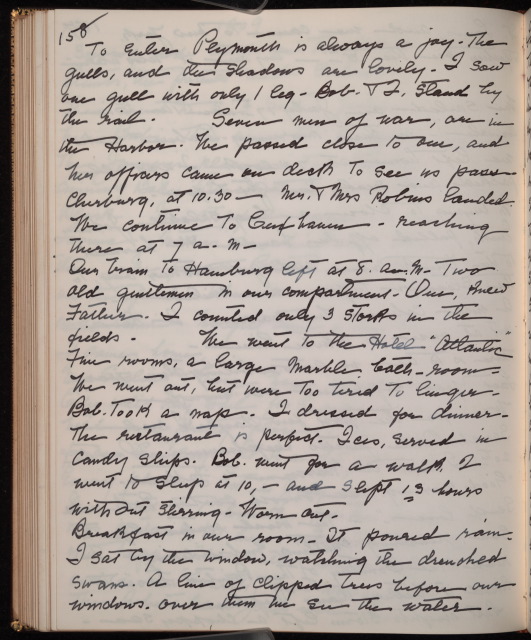 158
To Enter Plymouth is always a joy. The
gulls, and their shadows are lovely. I saw
one gull with only 1 leg. Bob. & I. Stand by
the rail. Seven men of war, are in
the Harbor. We passed close to one, and
her officers came on deck to see us pass -
Cherburg, at 10.30 - Mr. & Mrs Robins landed.
We continue to Cuxhaven - reaching
there at 7 a. m -
Our train to Hamburg left at 8. a. m. Two
old gentlemen in our compartment. One, knew
Father. I counted only 3 Storks in the
fields. We went to the Hotel "Atlantic"
Fine rooms, a large Marble, bath-room -
We went out, but were too tired to linger -
Bob. Took a nap. I dressed for dinner -
The restaurant is perfect. Ices, served in
candy ships. Bob. went for a walk. I
went to sleep at 10, - and slept 13 hours
without stirring - Worn out.
Breakfast in our room - It poured rain -
I sat by the window, watching the drenched
swans. A line of clipped trees before our
windows. over them we see the water.